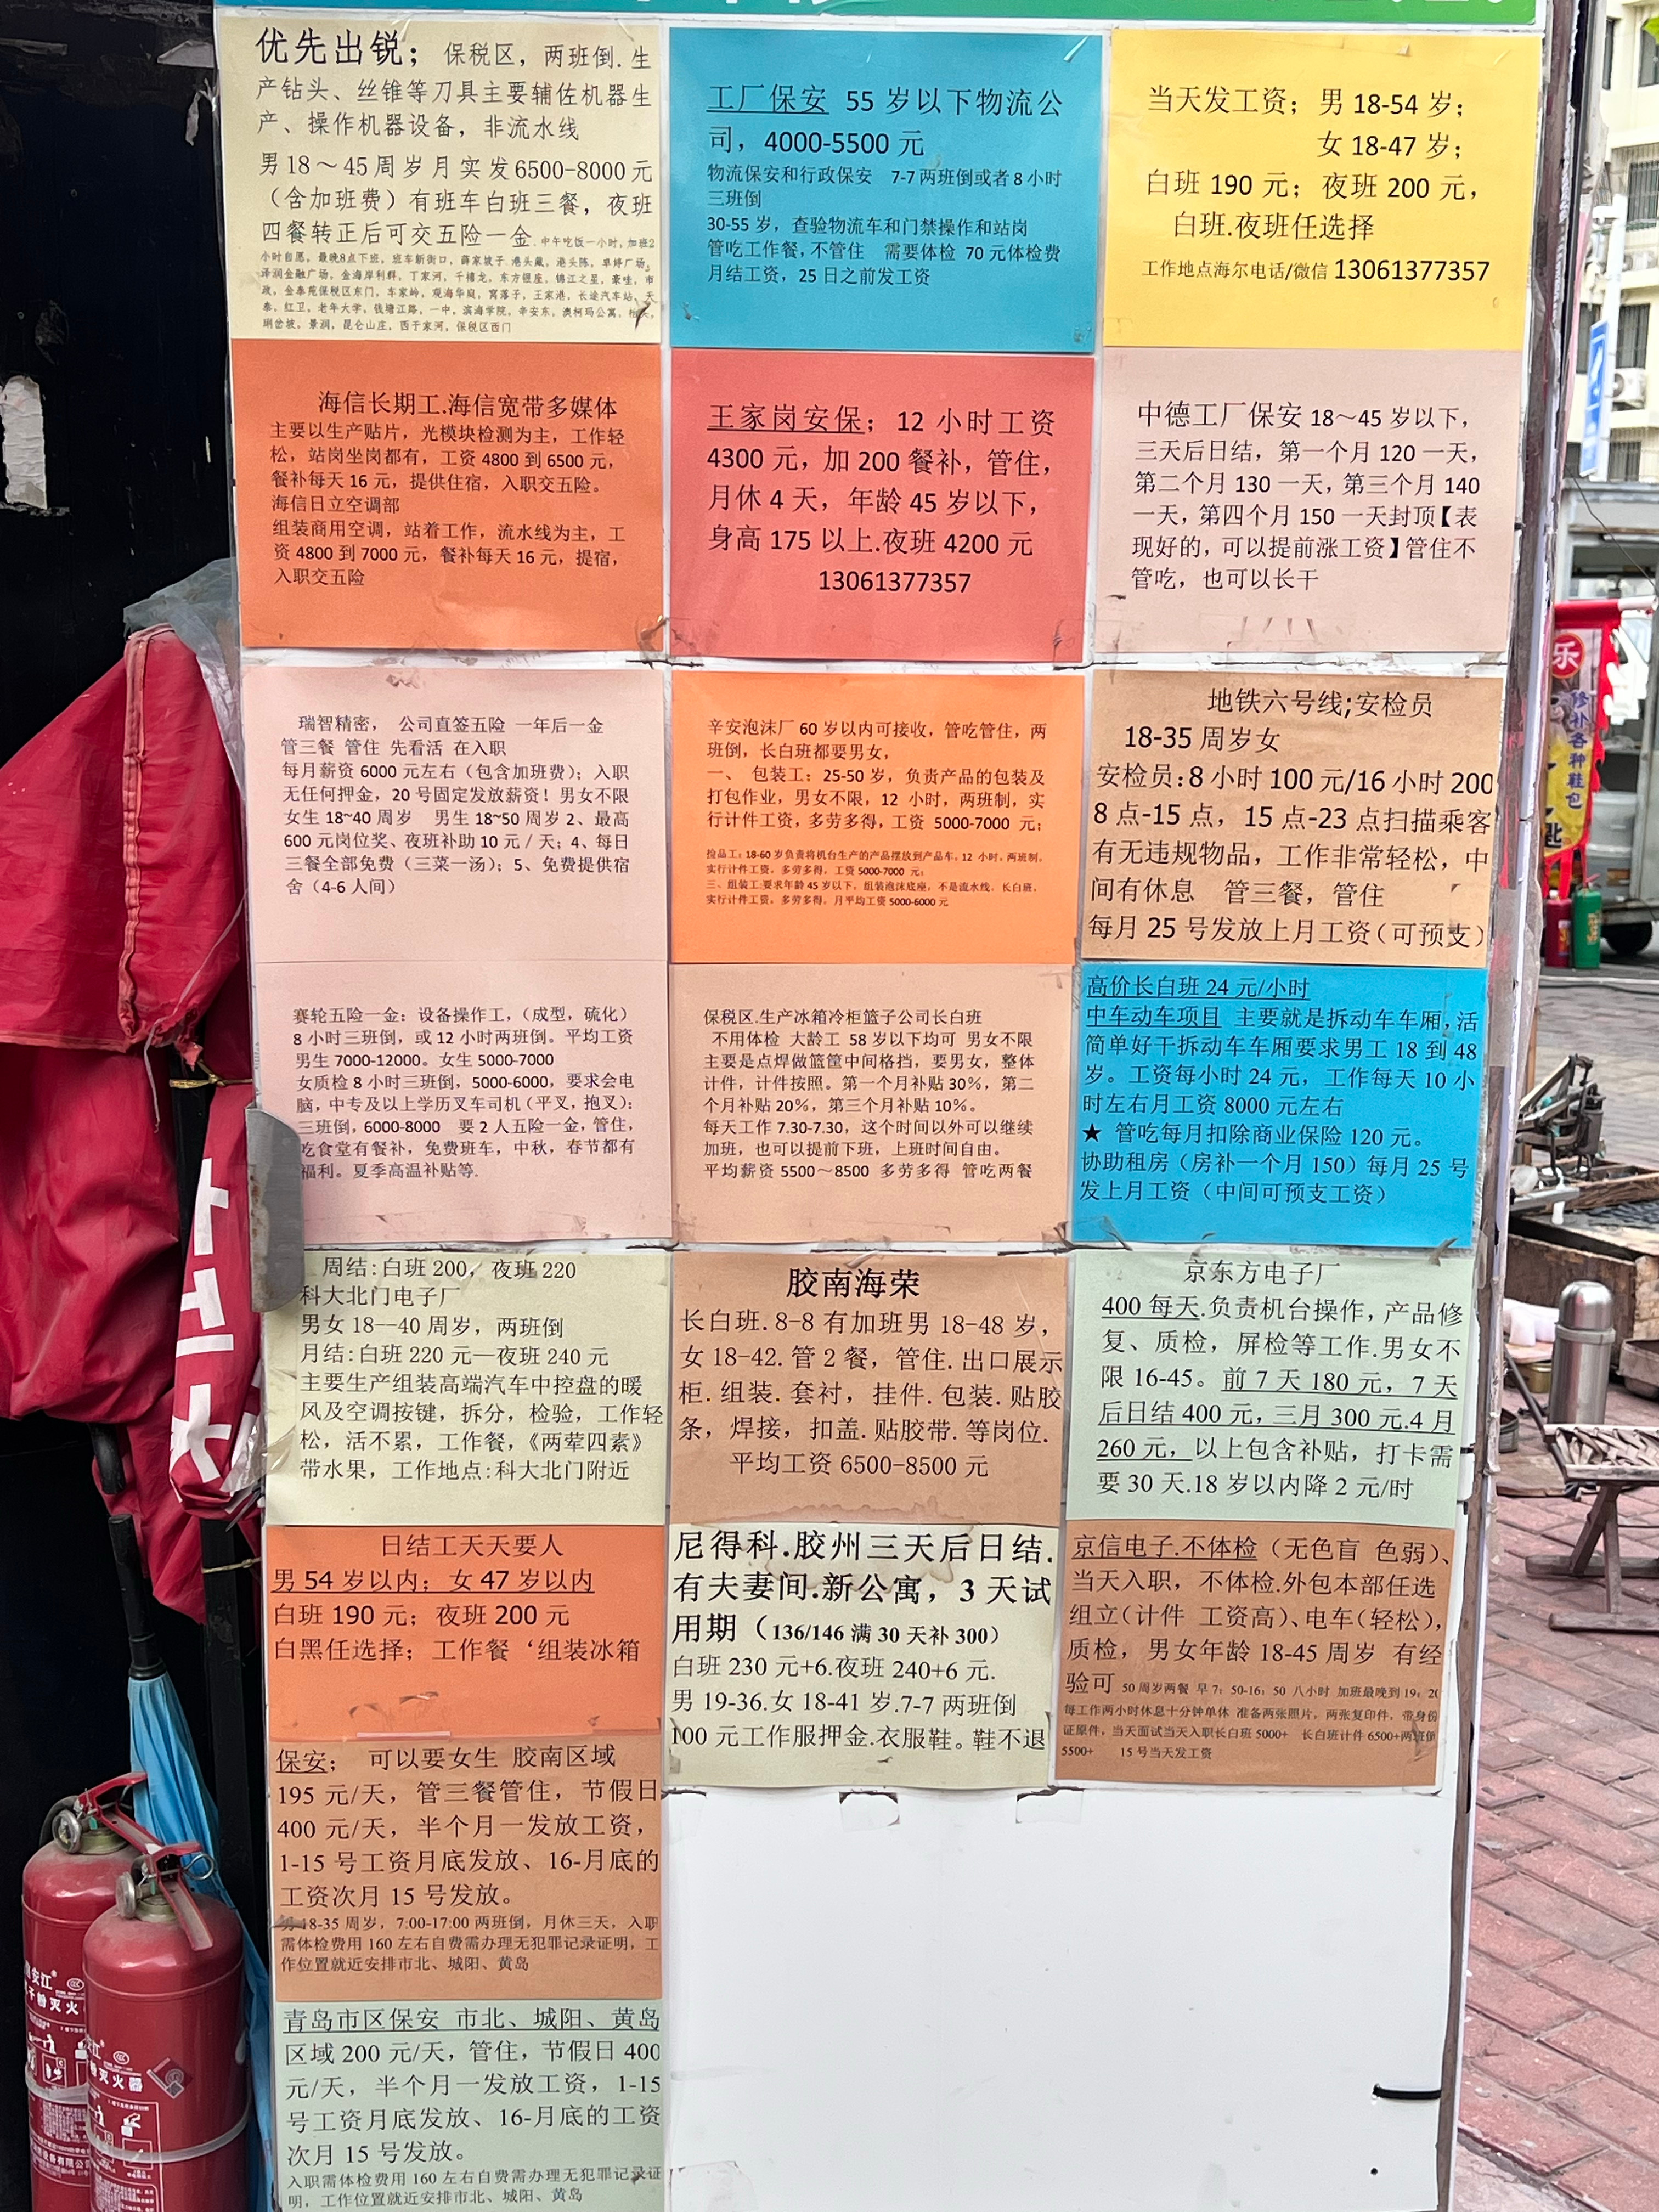 优先出锐；保税区，两班倒.生
产钻头、丝锥等刀具主要辅佐机器生
产、操作机器设备，非流水线
男18～45周岁月实发6500-8000元
（含加班费）有班车白班三餐，夜班
四餐转正后可交五险一金.中午吃饭一小时,加班2
小时自愿，最晚8点下班，班车新街口，薛家坡子 港头藏，港头陈，阜婷广场，
泽润金融广场，金海岸利群，丁家河，千禧龙，东方银座，锦江之星，豪哇，市
政，金泰苑保税区东门，车家岭，观海华庭，窝落子，王家港，长途汽车站，天
泰，红卫，老年大学，钱塘江路，一中，滨海学院，辛安东，澳柯玛公寓，
崔岔坡，景润，昆仑山庄，西于家河，保税区西门
工厂保安 55 岁以下物流公
司，4000-5500 元
物流保安和行政保安 7-7 两班倒或者 8 小时
三班倒
30-55 岁，查验物流车和门禁操作和站岗
管吃工作餐，不管住 需要体检 70 元体检费
月结工资，25 日之前发工资
当天发工资；男 18-54 岁；
女 18-47 岁；
白班 190 元；夜班 200 元，
白班.夜班任选择
工作地点海尔电话/微信 13061377357
海信长期工.海信宽带多媒体
主要以生产贴片，光模块检测为主，工作轻
松，站岗坐岗都有，工资 4800 到 6500 元，
餐补每天 16 元，提供住宿，入职交五险。
海信日立空调部
组装商用空调，站着工作，流水线为主，工
资 4800 到 7000 元，餐补每天 16 元，提宿，
入职交五险
王家岗安保；12 小时工资
4300 元，加 200 餐补，管住，
月休 4 天，年龄 45 岁以下，
身高 175 以上.夜班 4200 元
13061377357
中德工厂保安 18～45 岁以下，
三天后日结，第一个月 120 一天，
第二个月 130 一天，第三个月 140
一天，第四个月 150 一天封顶【表
现好的，可以提前涨工资】管住不
管吃，也可以长干
瑞智精密， 公司直签五险 一年后一金
管三餐 管住 先看活 在入职
每月薪资 6000 元左右（包含加班费）；入职
无任何押金，20 号固定发放薪资！男女不限
女生 18~40 周岁 男生 18~50 周岁 2、最高
600 元岗位奖、夜班补助 10 元 / 天；4、每日
三餐全部免费（三菜一汤）；5、免费提供宿
舍（4-6 人间）
辛安泡沫厂 60 岁以内可接收，管吃管住，两
班倒，长白班都要男女，
一、 包装工：25-50 岁，负责产品的包装及
打包作业，男女不限，12 小时，两班制，实
行计件工资，多劳多得，工资 5000-7000 元；
检品工：18-60 岁负责将机台生产的产品摆放到产品车，12 小时，两班制，
实行计件工资。多劳多得，工资 5000-7000 元；
三、组装工:要求年龄 45 岁以下，组装泡沫底座，不是流水线，长白班，
实行计件工资。多劳多得，月平均工资 5000-6000 元
地铁六号线;安检员
18-35 周岁女
安检员：8 小时 100 元/16 小时 200
8 点-15 点，15 点-23 点扫描乘客
有无违规物品，工作非常轻松，中
间有休息 管三餐，管住
每月 25 号发放上月工资（可预支）
赛轮五险一金：设备操作工，（成型，硫化）
8 小时三班倒，或 12 小时两班倒。平均工资
男生 7000-12000。女生 5000-7000
女质检 8 小时三班倒，5000-6000，要求会电
脑，中专及以上学历叉车司机（平叉，抱叉）；
三班倒，6000-8000 要 2 人五险一金，管住，
吃食堂有餐补，免费班车，中秋，春节都有
福利。夏季高温补贴等.
保税区.生产冰箱冷柜篮子公司长白班
不用体检 大龄工 58 岁以下均可 男女不限
主要是点焊做篮筐中间格挡，要男女，整体
计件，计件按照。第一个月补贴 30%，第二
个月补贴 20%，第三个月补贴 10%。
每天工作 7.30-7.30，这个时间以外可以继续
加班，也可以提前下班，上班时间自由。
平均薪资 5500～8500 多劳多得 管吃两餐
高价长白班 24 元/小时
中车动车项目 主要就是拆动车车厢，活
简单好干拆动车车厢要求男工 18 到 48
岁。工资每小时 24 元，工作每天 10 小
时左右月工资 8000 元左右
★ 管吃每月扣除商业保险 120 元。
协助租房（房补一个月 150）每月 25 号
发上月工资（中间可预支工资）
周结：白班 200，夜班 220
科大北门电子厂
男女 18--40 周岁，两班倒
月结：白班 220 元—夜班 240 元
主要生产组装高端汽车中控盘的暖
风及空调按键，拆分，检验，工作轻
松，活不累，工作餐，《两荤四素》
带水果，工作地点：科大北门附近
胶南海荣
长白班.8-8 有加班男 18-48 岁，
女 18-42.管 2 餐，管住.出口展示
柜.组装.套衬，挂件.包装.贴胶
条，焊接，扣盖.贴胶带.等岗位.
平均工资 6500-8500 元
京东方电子厂
400 每天.负责机台操作，产品修
复、质检，屏检等工作.男女不
限 16-45。前 7 天 180 元，7 天
后日结 400 元，三月 300 元.4 月
260 元，以上包含补贴，打卡需
要 30 天.18 岁以内降 2 元/时
日结工天天要人
男 54 岁以内；女 47 岁以内
白班 190 元；夜班 200 元
白黑任选择；工作餐‘组装冰箱
尼得科.胶州三天后日结.
有夫妻间.新公寓，3 天试
用期（136/146 满 30 天补 300）
白班 230 元+6.夜班 240+6 元.
男 19-36.女 18-41 岁.7-7 两班倒
100 元工作服押金.衣服鞋。鞋不退
京信电子.不体检（无色盲 色弱）、
当天入职，不体检.外包本部任选
组立（计件 工资高）、电车（轻松），
质检，男女年龄 18-45 周岁 有经
验可 50 周岁两餐 早 7：50-16：50 八小时 加班最晚到 19：20
每工作两小时休息十分钟单休 准备两张照片，两张复印件，带身份
证原件，当天面试当天入职长白班 5000+ 长白班计件 6500+两班倒
5500+ 15 号当天发工资
保安； 可以要女生 胶南区域
195 元/天，管三餐管住，节假日
400 元/天，半个月一发放工资，
1-15 号工资月底发放、16-月底的
工资次月 15 号发放。
男 18-35 周岁，7:00-17:00 两班倒，月休三天，入职
需体检费用 160 左右自费需办理无犯罪记录证明，工
作位置就近安排市北、城阳、黄岛
青岛市区保安 市北、城阳、黄岛
区域 200 元/天，管住，节假日 400
元/天，半个月一发放工资，1-15
号工资月底发放、16-月底的工资
次月 15 号发放。
入职需体检费用 160 左右自费需办理无犯罪记录证
明，工作位置就近安排市北、城阳、黄岛
乐
修补各种鞋包
匙
安江
干粉灭火
粉灭火器